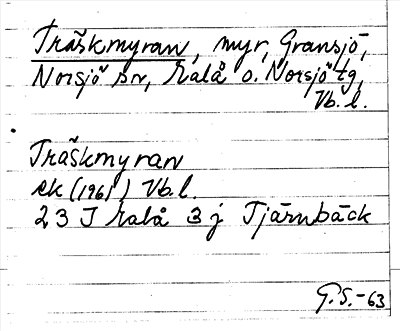 Träskmyran, myr, Gransjö,
Norsjö sn, Malå o. Norsjö tg,
Vb. l.
Träskmyran
ek (1961) Vb.l.
23 J Malå 3 j Tjärnbäck
G.S.-63